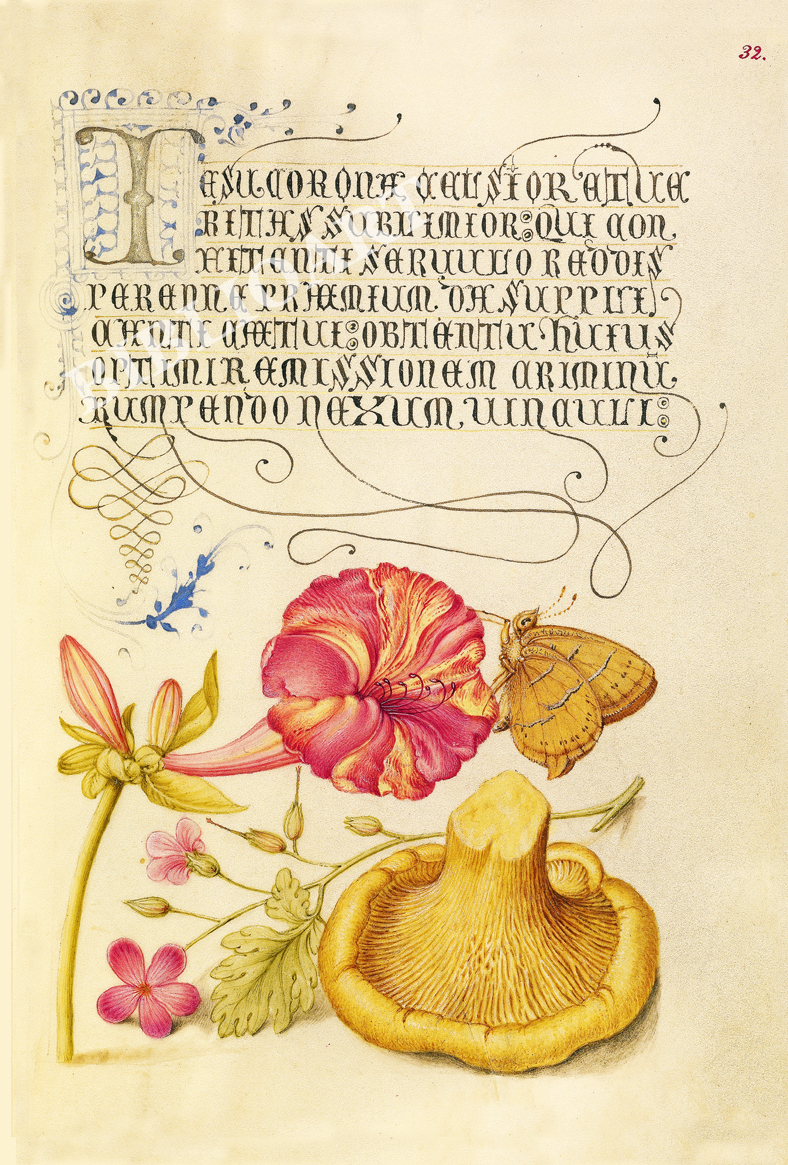 32.
IESU CORONÆ CELSIOR ET UE
RITAS SUBLIMIOR: QUI CON
FITENTI SERUULO REDDIS
PERENNE PRÆMIUM. DA SUPPLI
CANTI CÆTUI: OBTENTU HUIUS
OPTIMI REMISSIONEM CRIMINŪ
RUMPENDO NEXUM UINCULI: